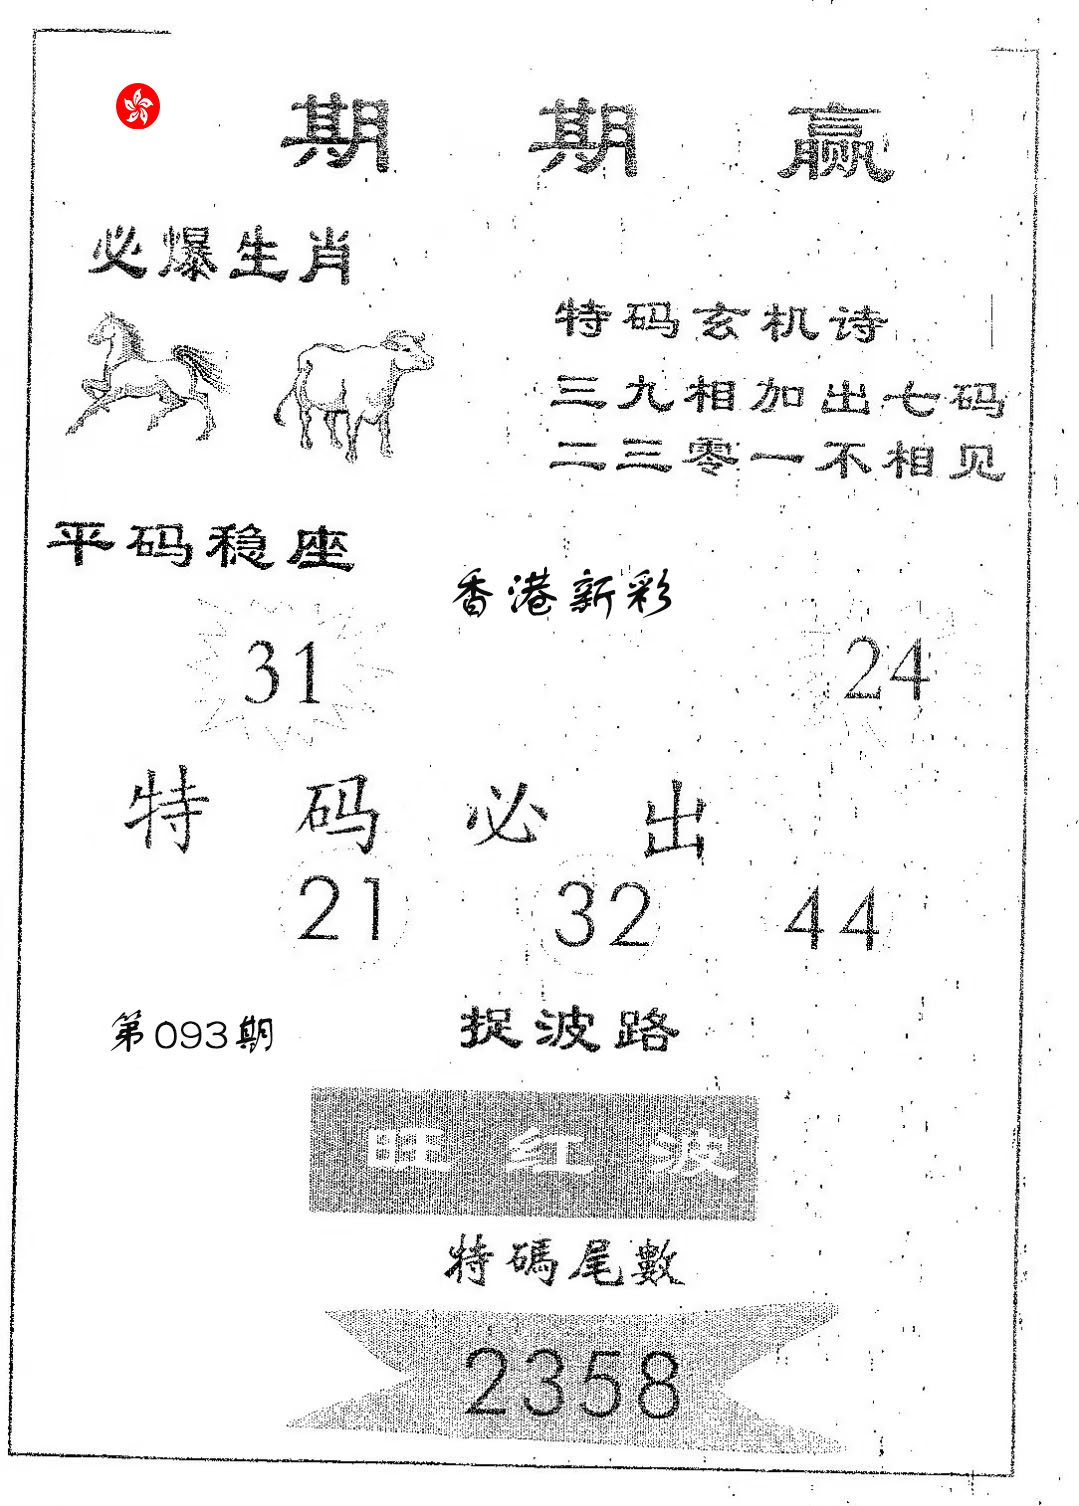 期期赢
必爆生肖
特码玄机诗
三九相加出七码
二三零一不相见
平码稳座
香港新彩
31
24
特码必出
21
32
44
第093期
捉波路
旺红波
特碼尾數
2358